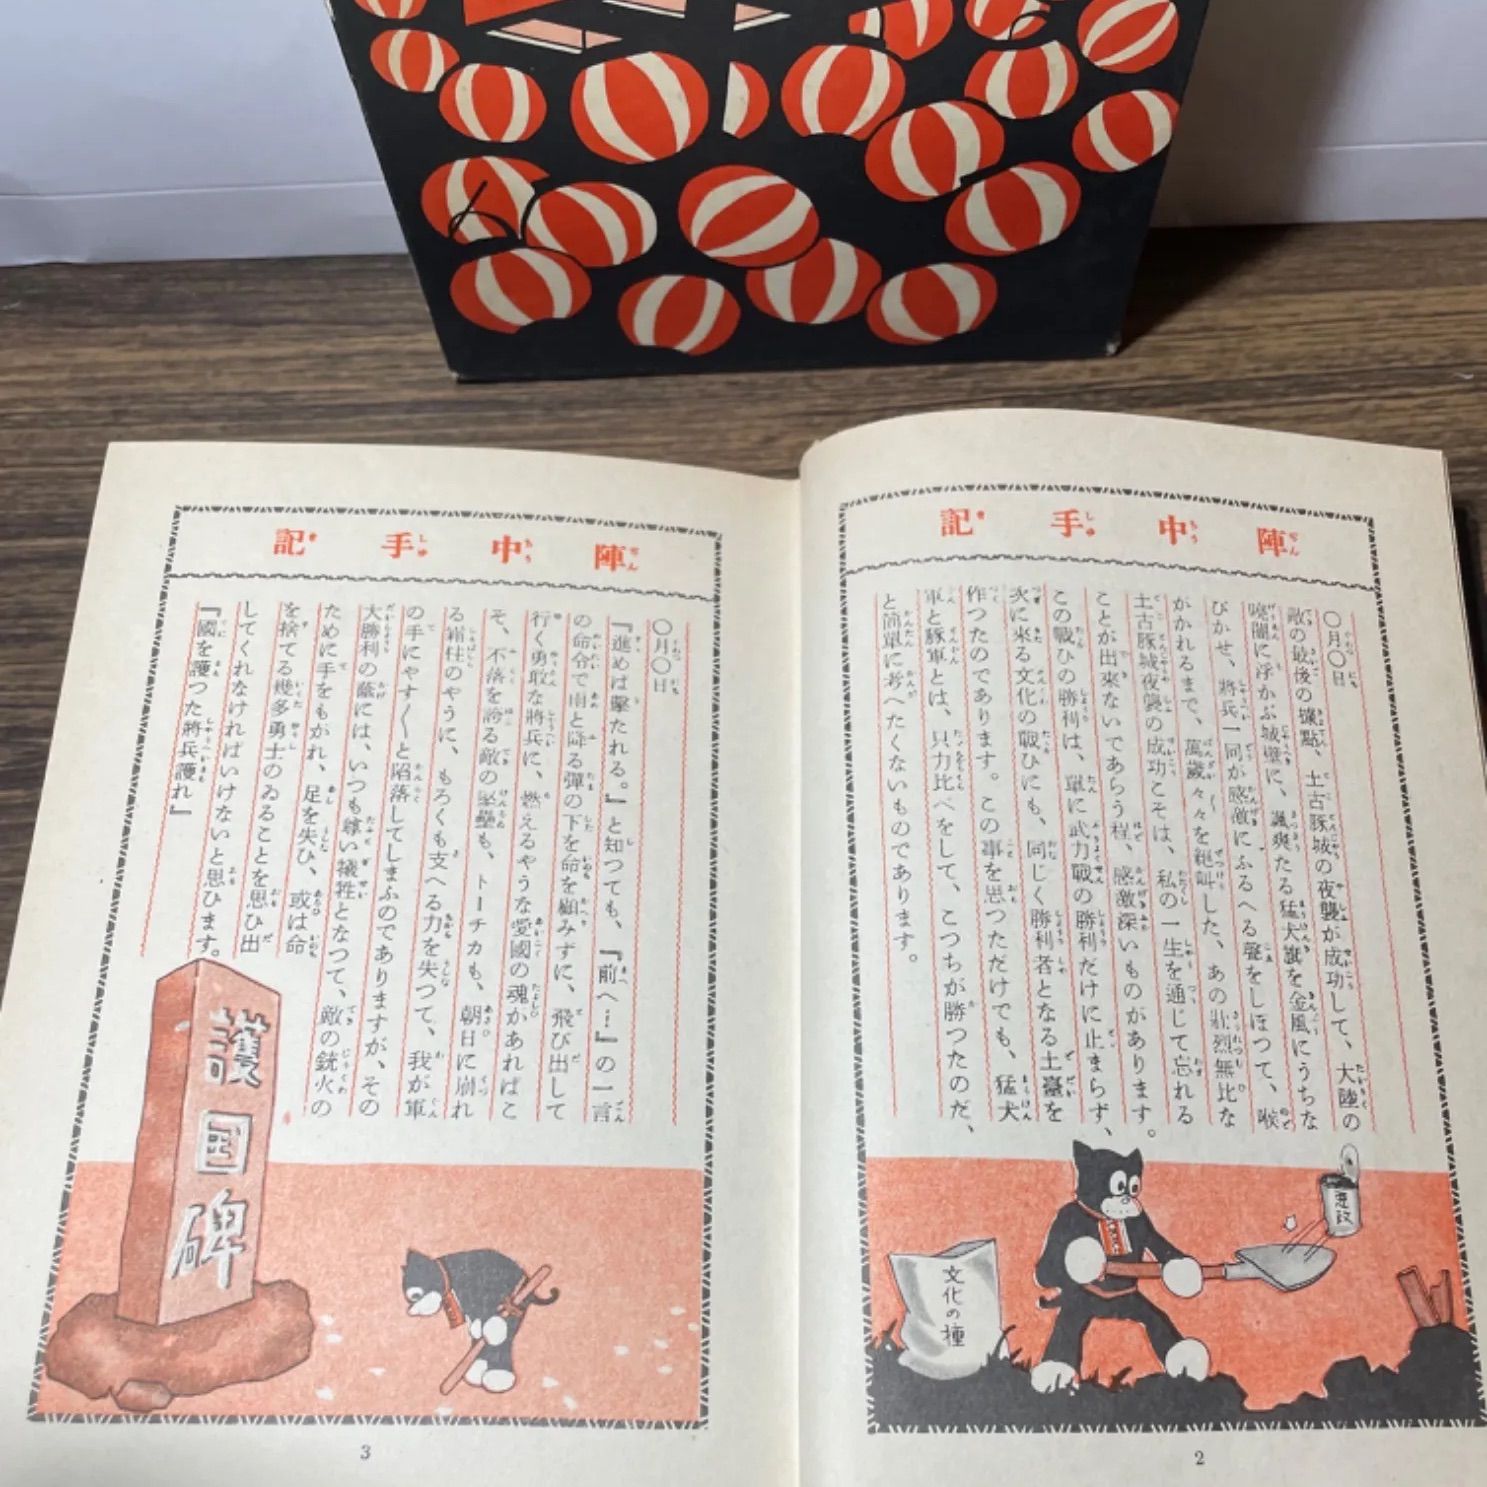 陣中手記
〇月〇日
敵の最後の據點、土古豚城の夜襲が成功して、大陸の
曉闇に浮かぶ城壁に、颯爽たる猛犬旗を金風にうちな
びかせ、將兵一同が感激にふるへる聲をしぼつて、喉
がかれるまで、萬歲〱々を絕叫した、あの壯烈無比な
土古豚城夜襲の成功こそは、私の一生を通じて忘れる
ことが出來ないであらう程、感激深いものがあります。
この戰ひの勝利は、單に武力戰の勝利だけに止まらず、
次に來る文化の戰ひにも、同じく勝利者となる土臺を
作つたのであります。この事を思つただけでも、猛犬
軍と豚軍とは、只力比べをして、こつちが勝つたのだ、
と簡單に考へたくないものであります。
文化の種
2
陣中手記
〇月〇日
『進めば擊たれる。』と知つても、『前へ…』の一言
の命令で雨と降る彈の下を命を顧みずに、飛び出して
行く勇敢な將兵に、燃えるやうな愛國の魂があればこ
そ、不落を誇る敵の堅壘も、トーチカも、朝日に崩れ
る霜柱のやうに、もろくも支へる力を失つて、我が軍
の手にやす〱と陷落してしまふのでありますが、その
大勝利の蔭には、いつも尊い犧牲となつて、敵の銃火の
ために手をもがれ、足を失ひ、或は命
を捨てる幾多勇士のゐることを思ひ出
してくれなければいけないと思ひます。
『國を護つた將兵護れ』
護国碑
3